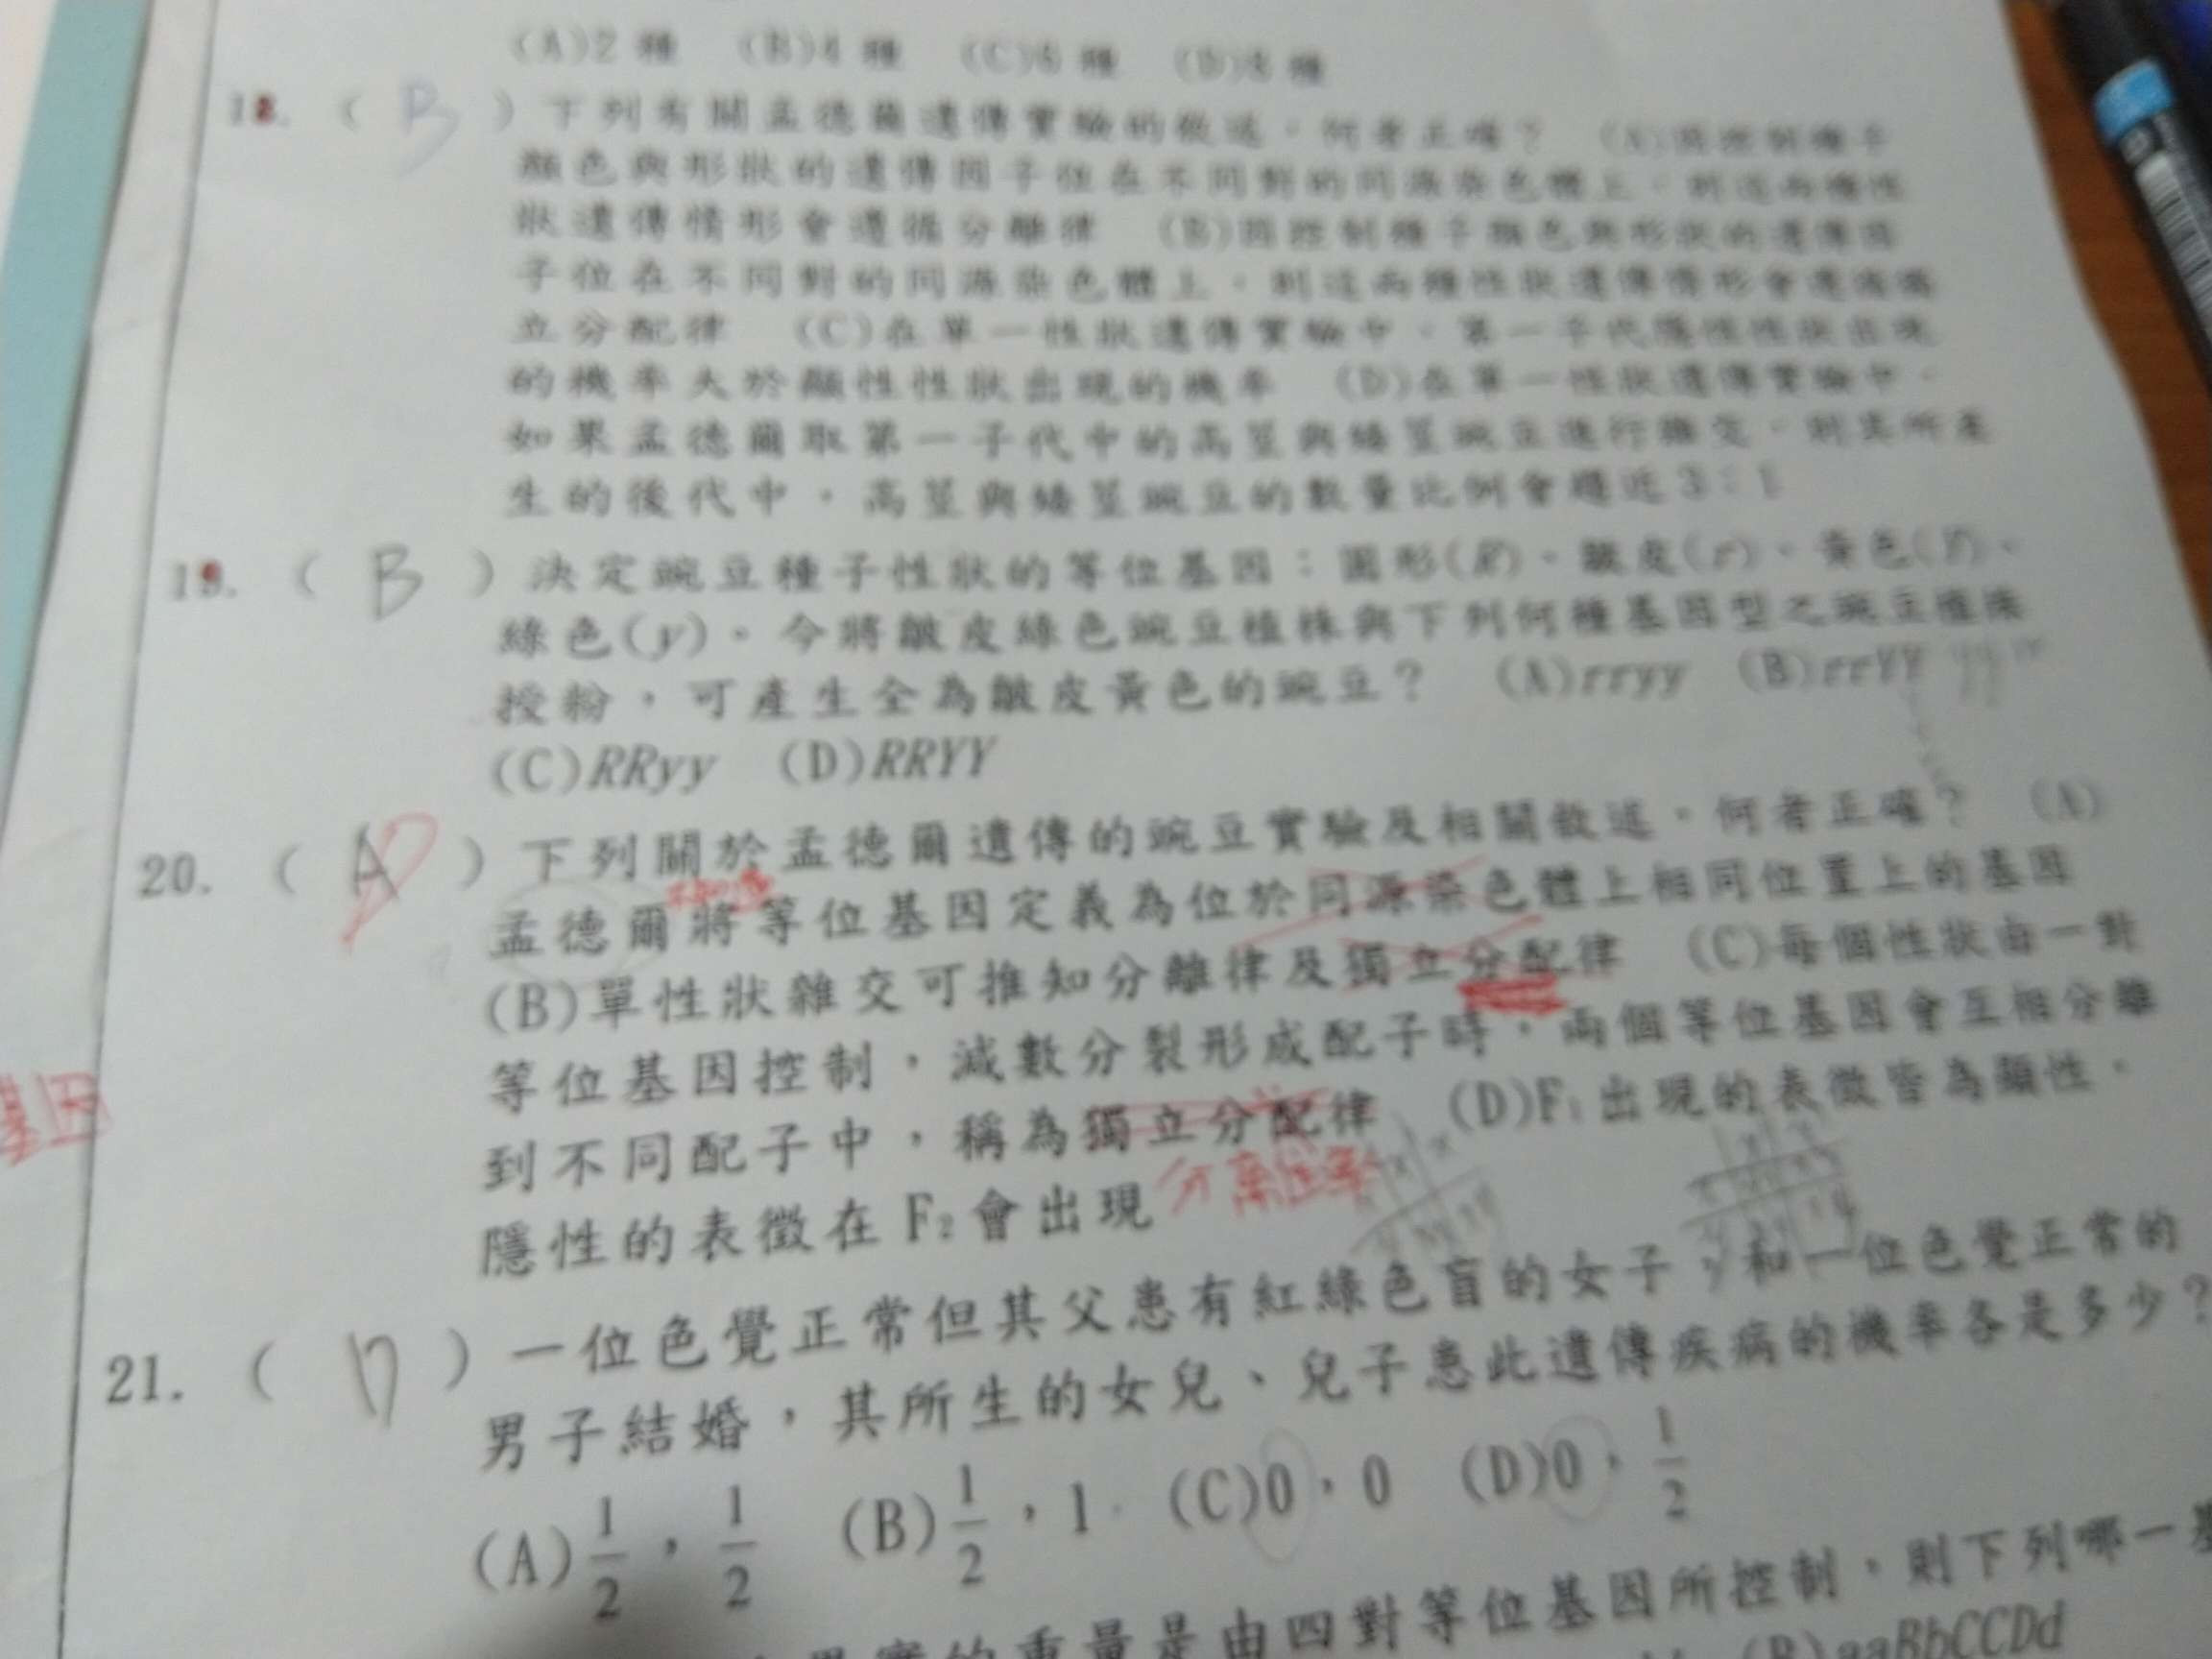 (A)2種 (B)4種 (C)6種 (D)8種
18. ( B ) 下列有關孟德爾遺傳實驗的敘述,何者正確? (A)因控制種子
顏色與形狀的遺傳因子位在不同對的同源染色體上,則這兩種性
狀遺傳情形會遵循分離律 (B)因控制種子顏色與形狀的遺傳因
子位在不同對的同源染色體上,則這兩種性狀遺傳情形會遵循獨
立分配律 (C)在單一性狀遺傳實驗中,第一子代隱性性狀出現
的機率大於顯性性狀出現的機率 (D)在單一性狀遺傳實驗中,
如果孟德爾取第一子代中的高莖與矮莖豌豆進行雜交,則其所產
生的後代中,高莖與矮莖豌豆的數量比例會趨近3:1
19. ( B ) 決定豌豆種子性狀的等位基因:圓形(R)、皺皮(r)、黃色(Y)、
綠色(y)。今將皺皮綠色豌豆植株與下列何種基因型之豌豆植株
授粉,可產生全為皺皮黃色的豌豆? (A)rryy (B)rrYY
(C)RRyy (D)RRYY
20. ( A D ) 下列關於孟德爾遺傳的豌豆實驗及相關敘述,何者正確? (A)
孟德爾將等位基因定義為位於同源染色體上相同位置上的基因
(B)單性狀雜交可推知分離律及獨立分配律 (C)每個性狀由一對
等位基因控制,減數分裂形成配子時,兩個等位基因會互相分離
基因
到不同配子中,稱為獨立分配律 (D)F₁出現的表徵皆為顯性,
隱性的表徵在 F₂會出現
21. ( D ) 一位色覺正常但其父患有紅綠色盲的女子,和一位色覺正常的
男子結婚,其所生的女兒、兒子患此遺傳疾病的機率各是多少?
(A)1/2,1/2 (B)1/2,1 (C)0,0 (D)0,1/2
的重量是由四對等位基因所控制,則下列哪一
(B)aaBbCCDd